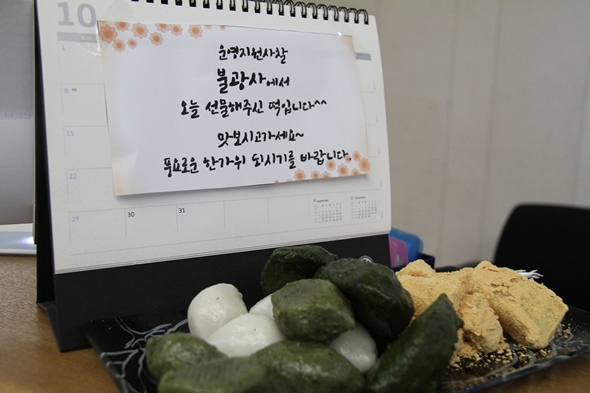 10
운영지원사찰
불광사에서
오늘 선물해주신 떡입니다^^
맛보시고가세요~
풍요로운 한가위 되시기를 바랍니다.
1
8
15
22
29 30 31